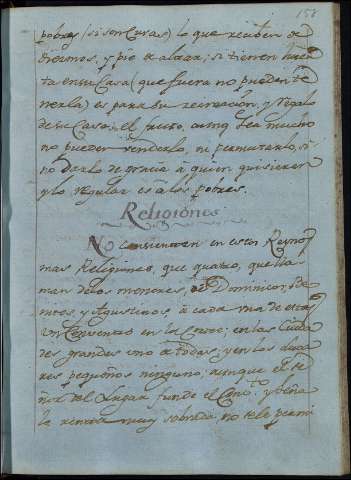 158
pobres (si son Curas) lo que reciben de
diezmos, y pie de altar; si tienen huer
ta en su Casa (que fuera no pueden te
nerla) es para su recreación, y regalo
de su Casa; el fruto, aunq. sea mucho
no pueden venderlo, ni permutarlo, si
no darlo de gracia á quien quisieren
y lo regular es á los pobres.
Religiónes
No consienten en estos Reynos
mas Religiones, que quatro, que lla
man de los menores, de Dominicos, Be
nitos y Agustinos, á cada una de estas
un Convento en la Corte; en las Ciuda
des grandes uno á todas; y en los luga
res pequeños ninguno; aunque el se
ñor del Lugar funde el Conv.to y tenga
la renta muy sobrada no se le permi